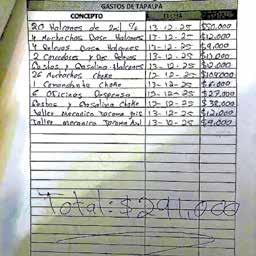 GASTOS DE TAPALPA
CONCEPTO FECHA
20 Halcones de 2x1 % 13-12-25 $50,000
4 Muchachos Base Halcones 13-12-25 $12,000
4 Relevos Base Halcones 13-12-25 $9,000
2 13-12-25
Gastos y Gasolina Halcones 13-12-25
26 Muchachos Choke 13-12-25 $104,000
1 Comandante Choke 13-12-25
6 Oficinas Despensa 13-12-25 $27,000
Gastos y Gasolina Choke 13-12-25 $38,000
Taller Mecanico Tacoma gris 13-12-25 $12,000
Taller Mecanico Tacoma Azul 13-12-25 $9,000
Total: $291,000